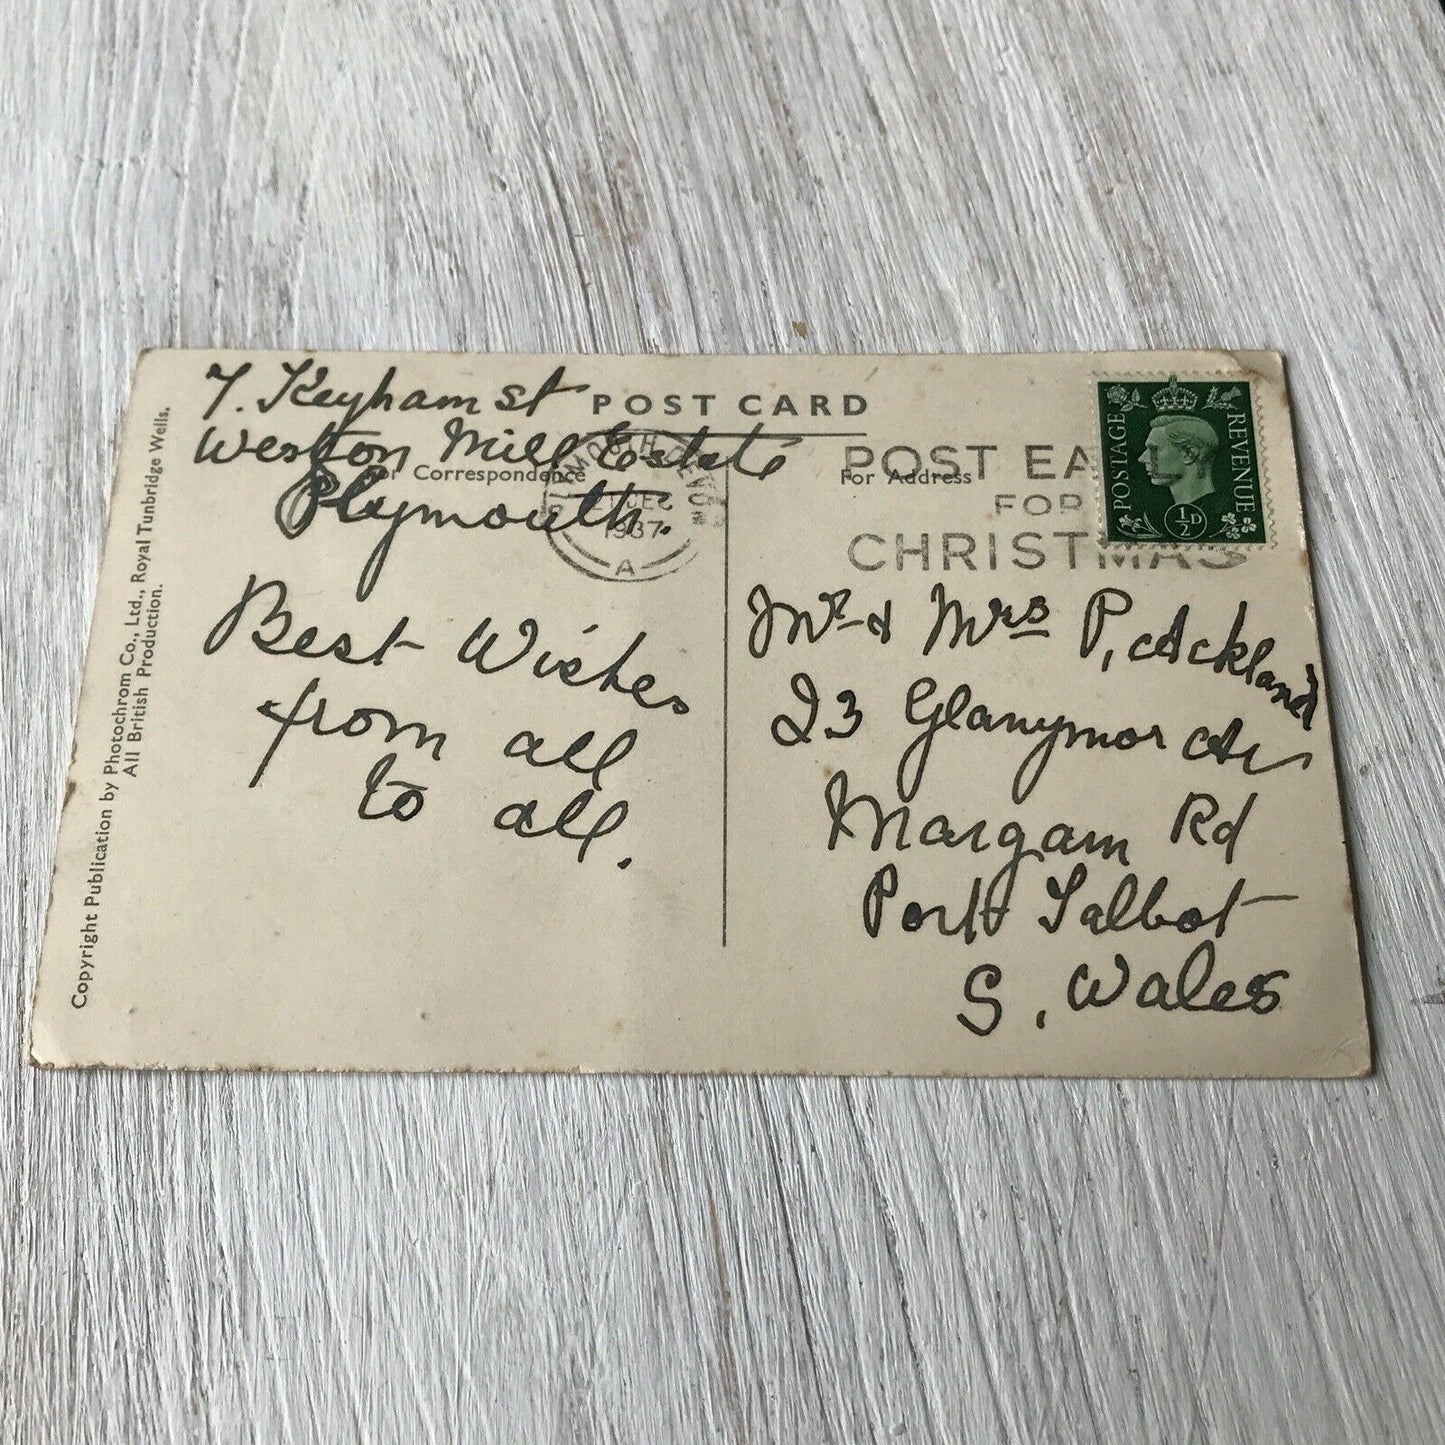 7. Keyham St
Weston Mill Estate
Plymouth.
Best Wishes
from all
to all.
POST CARD
Correspondence
For Address
DEC
1937
A
POST EA
FOR
CHRISTMAS
POSTAGE
REVENUE
½D
Mr & Mrs P, Ackland
23 Glanymor
Margam Rd
Port Talbot
S. Wales
Copyright Publication by Photochrom Co., Ltd., Royal Tunbridge Wells.
All British Production.